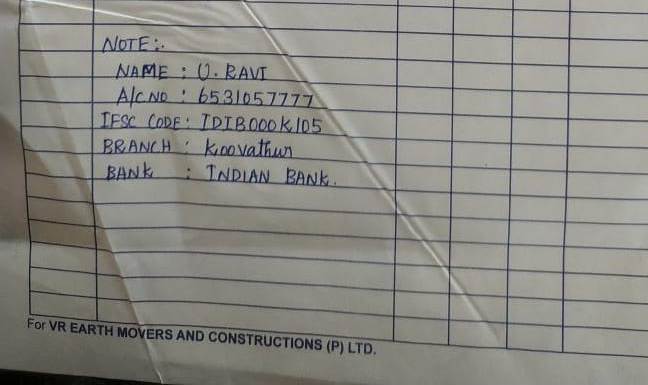 NOTE:.
NAME : U. RAVI
A/C.NO : 6531057777
IFSC CODE: IDIB000K105
BRANCH : Koovathur
BANK : INDIAN BANK.
For VR EARTH MOVERS AND CONSTRUCTIONS (P) LTD.